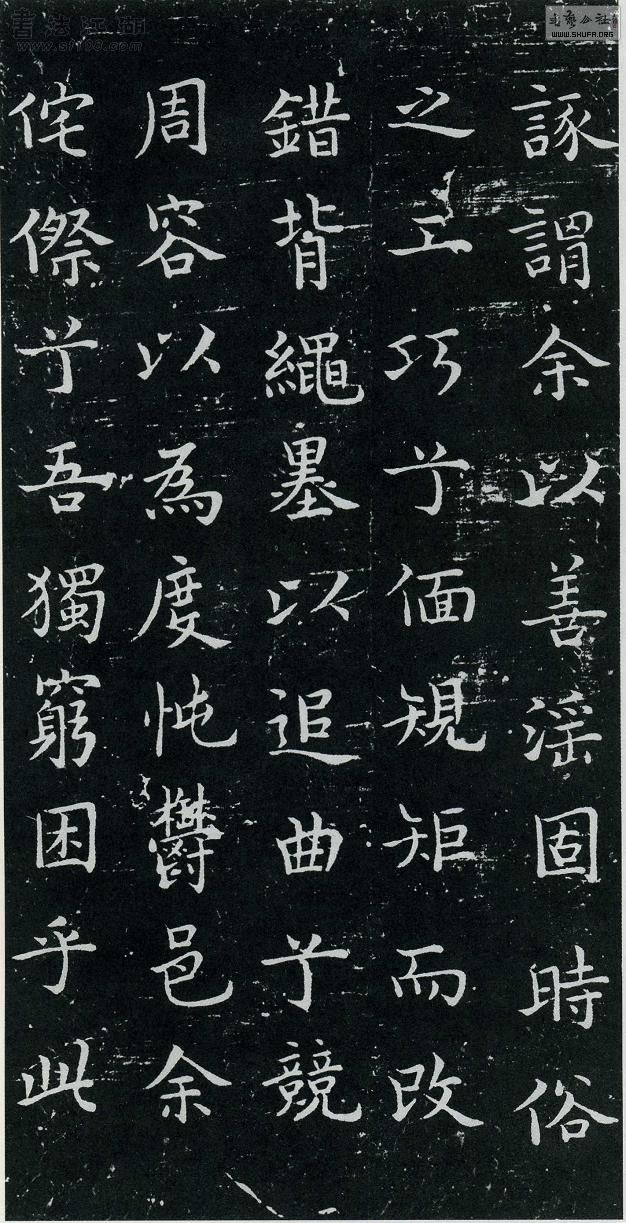 諑謂余以善淫固時俗
之工巧兮偭規矩而改
錯背繩墨以追曲兮競
周容以為度忳鬱邑余
侘傺兮吾獨窮困乎此
書法江湖
www.sf108.com
書藝公社
www.SHUFA.ORG